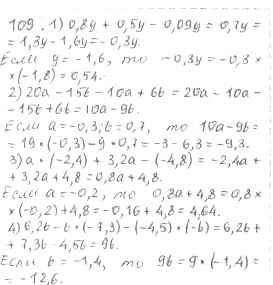 109. 1) 0,8y + 0,5y - 0,09y = 0,7y =
= 1,3y - 1,6y = - 0,3y.
Если y = -1,6, то -0,3y = -0,3 ×
× (-1,8) = 0,54.
2) 20a - 15б - 10a + 6б = 20a - 10a -
- 15б + 6б = 10a - 9б.
Если a = -0,3; б = 0,7, то 10a - 9б =
= 10 • (-0,3) - 9 • 0,7 = -3 - 6,3 = -9,3.
3) a • (-2,4) + 3,2a - (-4,8) = -2,4a +
+ 3,2a + 4,8 = 0,8a + 4,8.
Если a = -0,2, то 0,8a + 4,8 = 0,8 ×
× (-0,2) + 4,8 = -0,16 + 4,8 = 4,64.
4) 6,2б - б • (-7,3) - (-4,5) • (-б) = 6,2б +
+ 7,3б - 4,5б = 9б.
Если б = -1,4, то 9б = 9 • (-1,4) =
= -12,6.